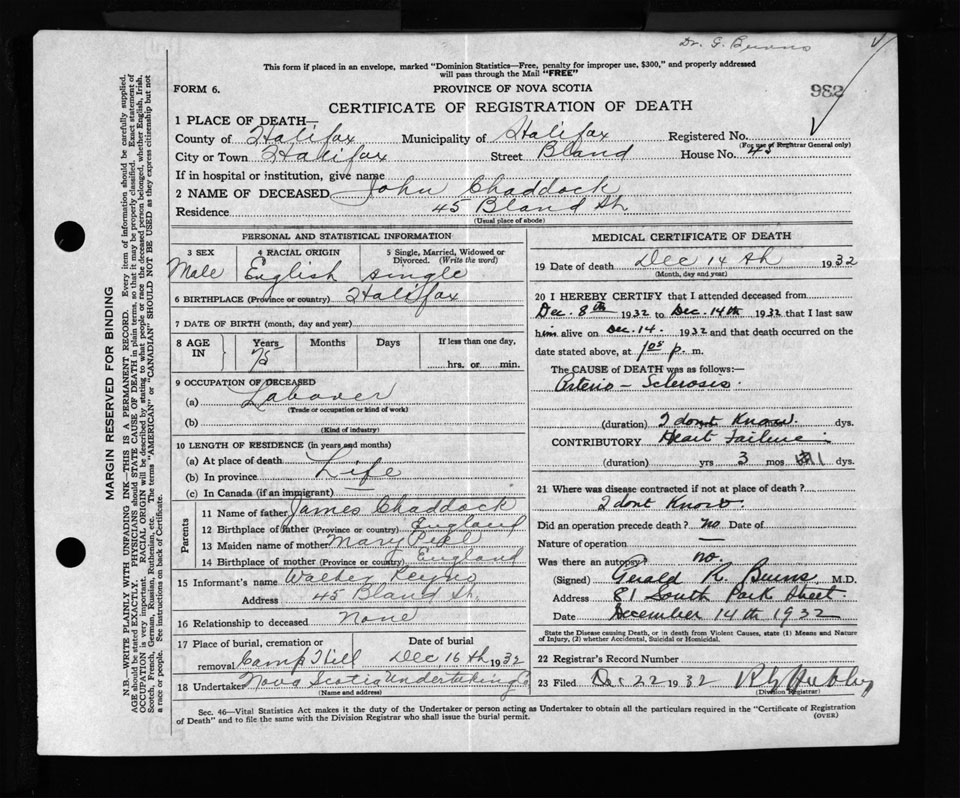 Dr. G. Burns
This form if placed in an envelope, marked "Dominion Statistics—Free, penalty for improper use, $300," and properly addressed
will pass through the Mail "FREE"
FORM 6. PROVINCE OF NOVA SCOTIA 982
CERTIFICATE OF REGISTRATION OF DEATH
1 PLACE OF DEATH—
County of Halifax Municipality of Halifax Registered No.
(For use of Registrar General only)
City or Town Halifax Street Bland House No. 45
If in hospital or institution, give name
2 NAME OF DECEASED John Chaddock
Residence 45 Bland St.
(Usual place of abode)
PERSONAL AND STATISTICAL INFORMATION
3 SEX 4 RACIAL ORIGIN 5 Single, Married, Widowed or
Divorced. (Write the word)
Male English single
6 BIRTHPLACE (Province or country) Halifax
7 DATE OF BIRTH (month, day and year)
8 AGE IN Years Months Days If less than one day,
75 hrs. or min.
9 OCCUPATION OF DECEASED
(a) Labover
(Trade or occupation or kind of work)
(b)
(Kind of industry)
10 LENGTH OF RESIDENCE (in years and months)
(a) At place of death
(b) In province Life
(c) In Canada (if an immigrant) —
Parents
11 Name of father James Chaddock
12 Birthplace of father (Province or country) England
13 Maiden name of mother Mary
14 Birthplace of mother (Province or country) England
15 Informant's name Walter
Address 45 Bland St.
16 Relationship to deceased None
17 Place of burial, cremation or Date of burial
removal Camp Hill Dec 16 th 1932
18 Undertaker Nova Scotia Undertaking Co
(Name and address)
MEDICAL CERTIFICATE OF DEATH
19 Date of death Dec 14 th 1932
(Month, day and year)
20 I HEREBY CERTIFY that I attended deceased from
Dec. 8th 1932 to Dec. 14th 1932 that I last saw
him alive on Dec. 14. 1932 and that death occurred on the
date stated above, at 1 05 p. m.
The CAUSE OF DEATH was as follows:—
Arterio - Sclerosis.
(duration) I dont Know. dys.
CONTRIBUTORY Heart Failure
(duration) yrs 3 mos dys.
21 Where was disease contracted if not at place of death?
I dont Know.
Did an operation precede death? no Date of
Nature of operation —
Was there an autopsy? no.
(Signed) Gerald R. Burns M.D.
Address 81 South Park Street
Date December 14th 1932
State the Disease causing Death, or in death from Violent Causes, state (1) Means and Nature
of Injury, (2) whether Accidental, Suicidal or Homicidal.
22 Registrar's Record Number
23 Filed Dec 22 1932
(Division Registrar)
Sec. 46—Vital Statistics Act makes it the duty of the Undertaker or person acting as Undertaker to obtain all the particulars required in the "Certificate of Registration
of Death" and to file the same with the Division Registrar who shall issue the burial permit. (OVER)
MARGIN RESERVED FOR BINDING
N.B.—WRITE PLAINLY WITH UNFADING INK—THIS IS A PERMANENT RECORD. Every item of information should be carefully supplied.
AGE should be stated EXACTLY. PHYSICIANS should STATE CAUSE OF DEATH in plain terms, so that it may be properly classified. Exact statement of
OCCUPATION is very important. RACIAL ORIGIN will be described by stating to what people or race the deceased person belonged, whether English, Irish,
Scotch, French, German, Russian, Ruthenian, etc. The terms "AMERICAN" or "CANADIAN" SHOULD NOT BE USED as they express citizenship but not
a race or people. See instructions on back of Certificate.